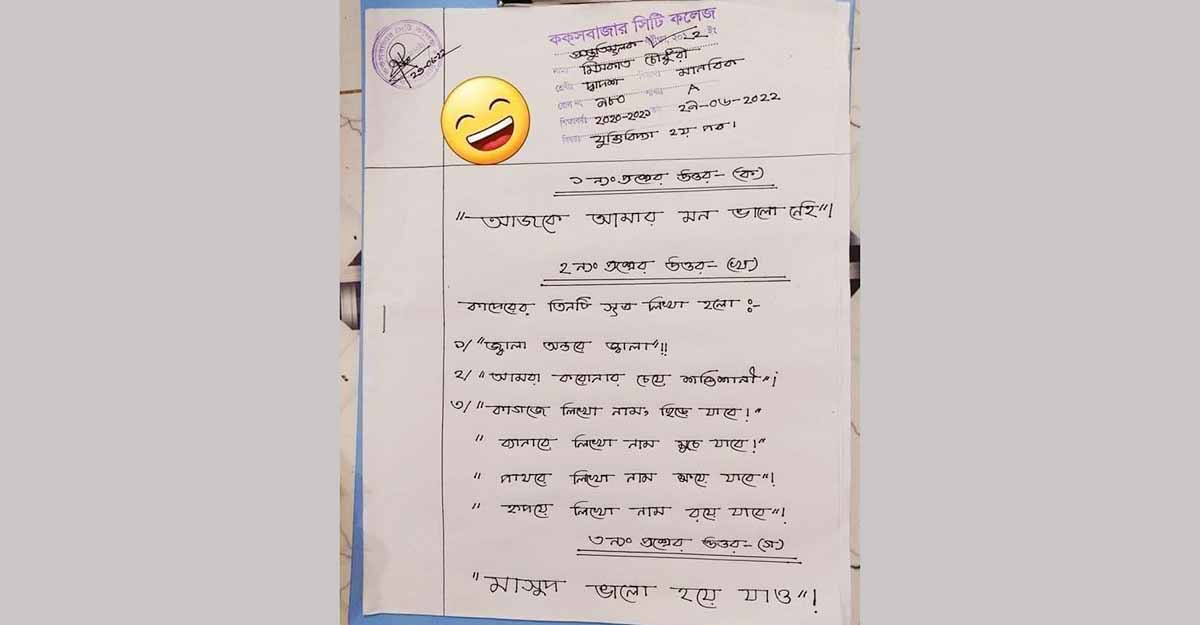 কক্সবাজার সিটি কলেজ
প্রস্তুতিমূলক পরীক্ষা, ২০২২ ইং
নাম মিসকাত চৌধুরী
শ্রেণী দ্বাদশ বিভাগ মানবিক
রোল নং ৯৮০ শাখা A
শিক্ষাবর্ষঃ ২০২০-২০২১ ২৯-০৬-2022
বিষয়ঃ যুক্তিবিদ্যা ২য় পত্র।
২৯-০৬-২২
১ নং প্রশ্নের উত্তর- (ক)
"আজকে আমার মন ভালো নেই"।
২ নং প্রশ্নের উত্তর- (খ)
কাদেরের তিনটি সূত্র লিখা হলো :-
১/ "জ্বালা অন্তরে জ্বালা"!!
২/ "আমরা করোনার চেয়ে শক্তিশালী"।
৩/ "কাগজে লিখো নাম, ছিড়ে যাবে!"
" ব্যানারে লিখো নাম মুছে যাবে!"
" পাথরে লিখো নাম ক্ষয়ে যাবে"!
" হৃদয়ে লিখো নাম রয়ে যাবে"!
৩ নং প্রশ্নের উত্তর- (গ)
"মাসুদ ভালো হয়ে যাও"!